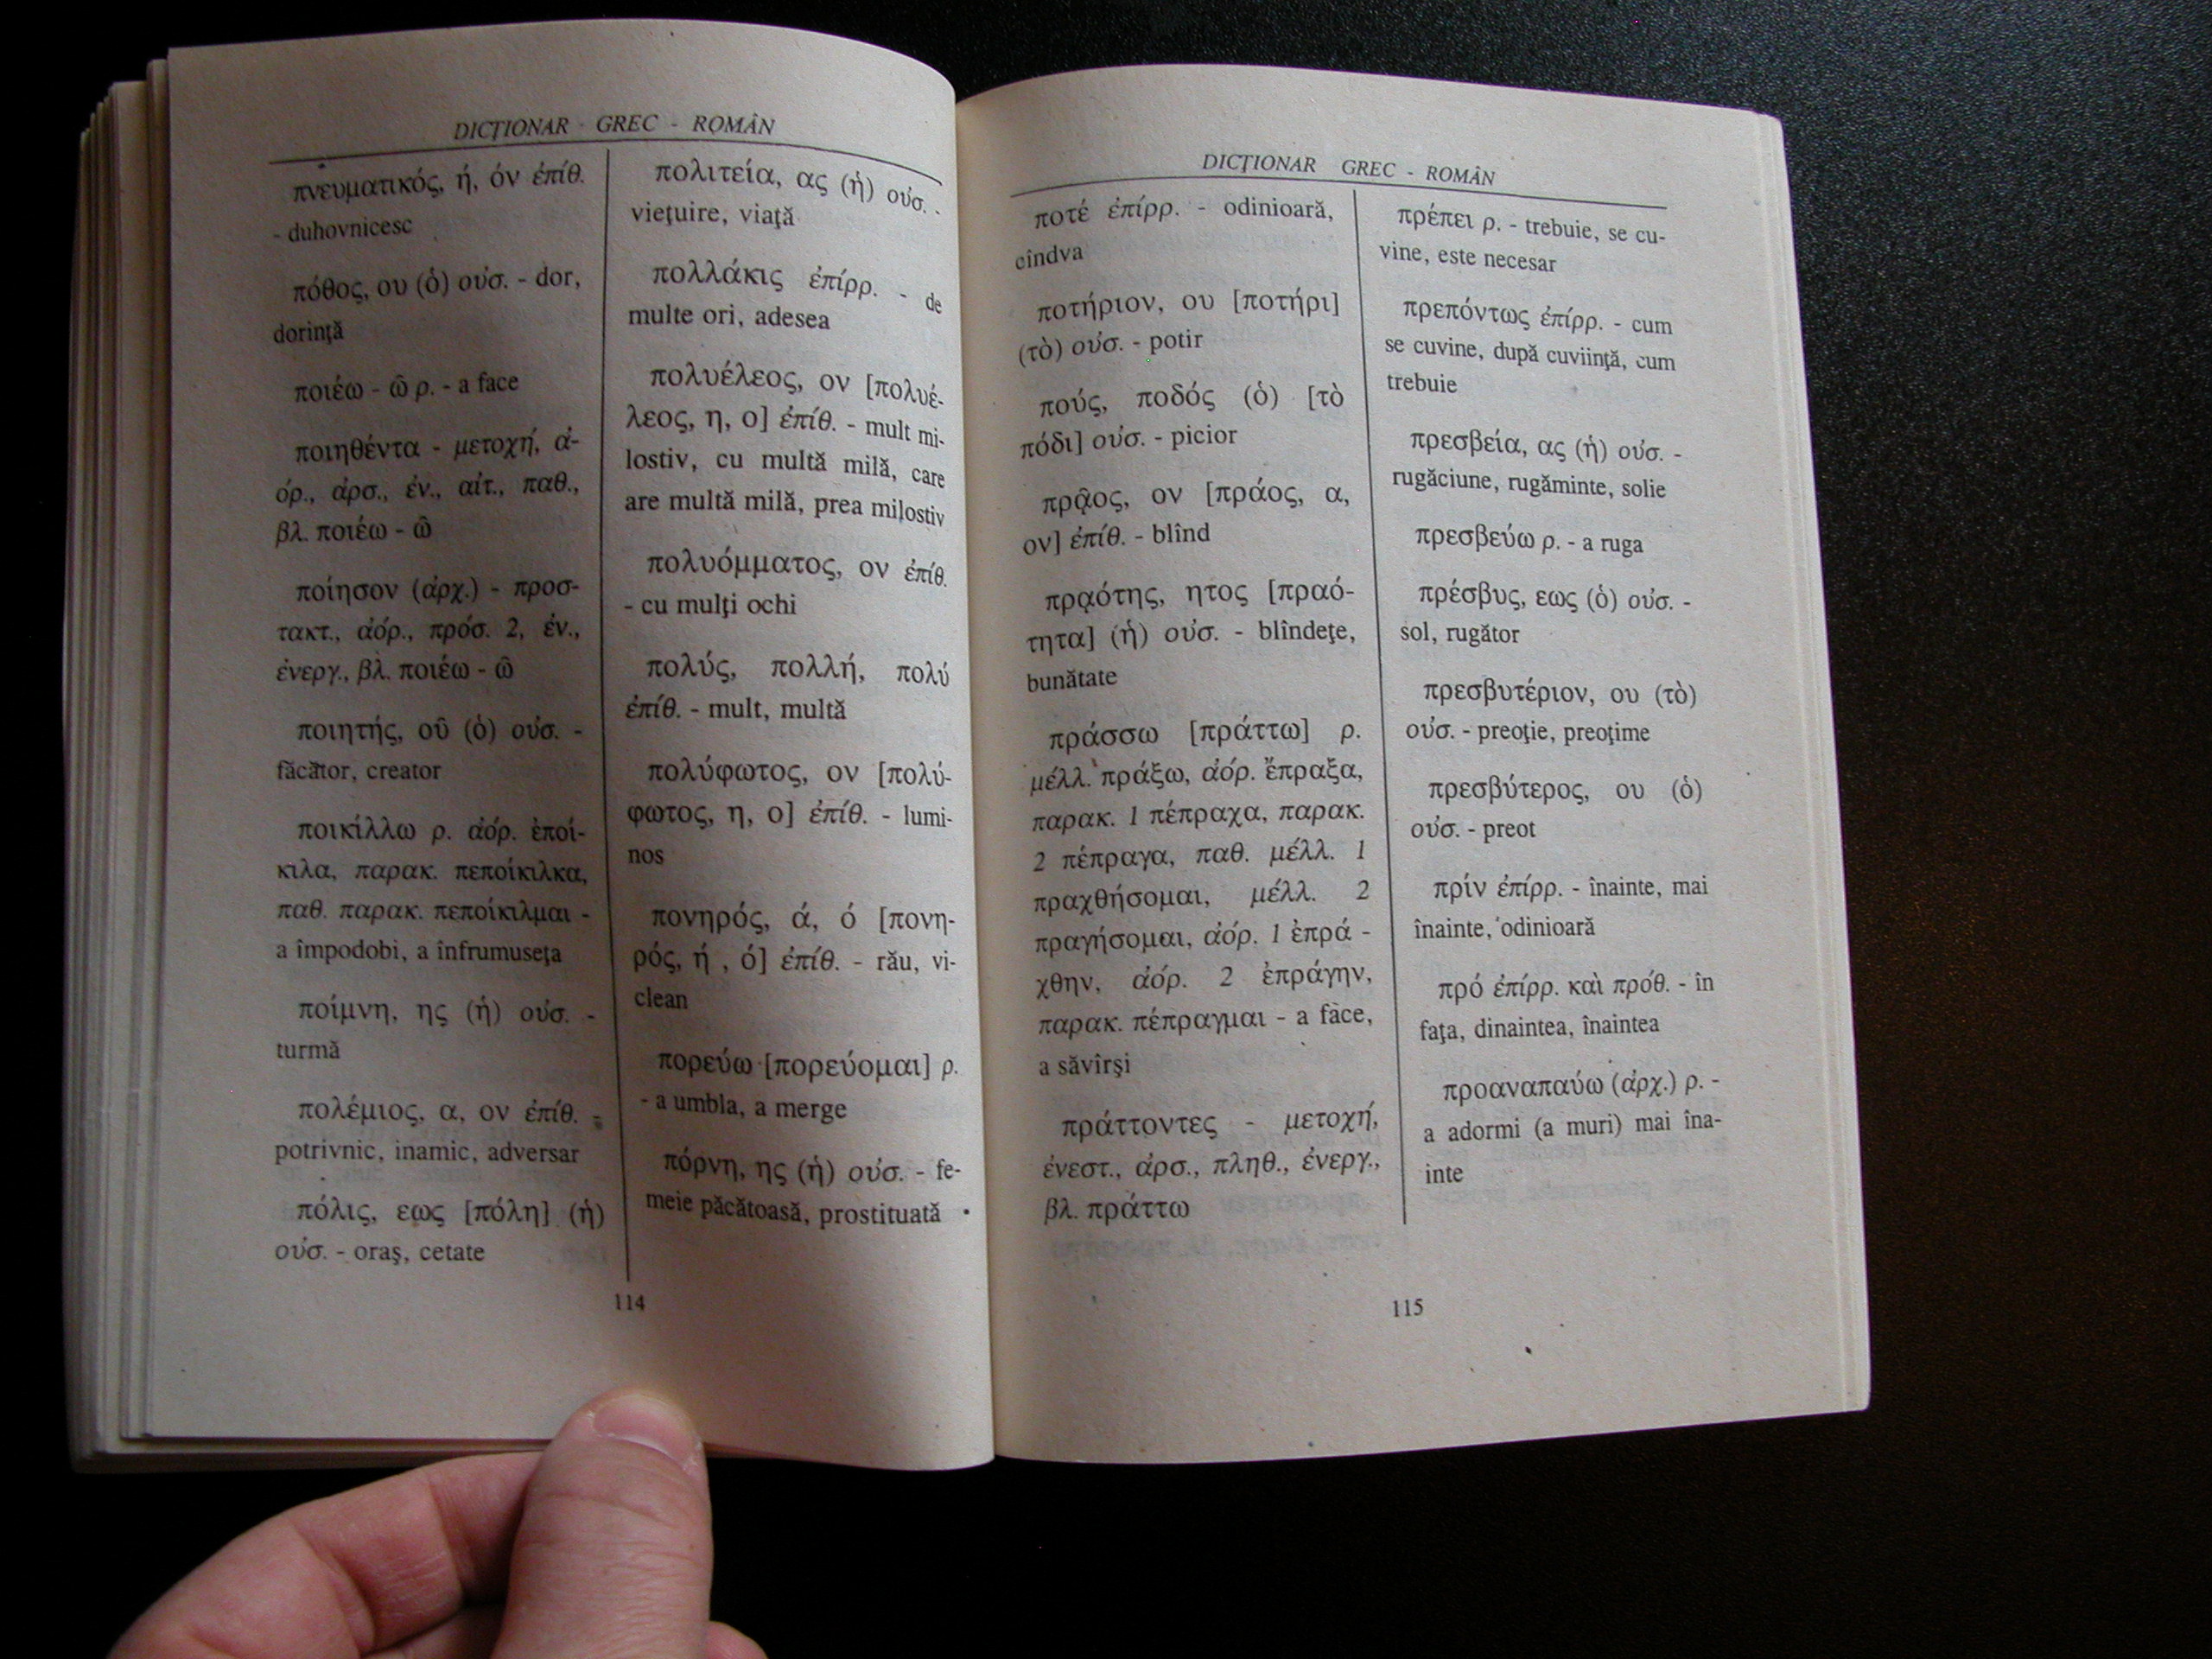 DICŢIONAR GREC - ROMÂN
πνευματικός, ή, όν ἐπίθ.
- duhovnicesc
πόθος, ου (ὁ) οὐσ. - dor,
dorinţă
ποιέω - ῶ ρ. - a face
ποιηθέντα - μετοχή, ἀ-
όρ., ἀρσ., ἑν., αἰτ., παθ.,
βλ. ποιέω - ῶ
ποίησον (ἀρχ.) - προσ-
τακτ., ἀόρ., πρόσ. 2, ἑν.,
ἐνεργ., βλ. ποιέω - ῶ
ποιητής, οῦ (ὁ) οὐσ. -
făcător, creator
ποικίλλω ρ. ἀόρ. ἐποί-
κιλα, παρακ. πεποίκιλκα,
παθ. παρακ. πεποίκιλμαι -
a împodobi, a înfrumuseţa
ποίμνη, ης (ἡ) οὐσ. -
turmă
πολέμιος, α, ον ἐπίθ. -
potrivnic, inamic, adversar
πόλις, εως [πόλη] (ἡ)
οὐσ. - oraş, cetate
πολιτεία, ας (ἡ) οὐσ. -
vieţuire, viaţă
πολλάκις ἐπίρρ. - de
multe ori, adesea
πολυέλεος, ον [πολυέ-
λεος, η, ο] ἐπίθ. - mult mi-
lostiv, cu multă milă, care
are multă milă, prea milostiv
πολυόμματος, ον ἐπίθ.
- cu mulţi ochi
πολύς, πολλή, πολύ
ἐπίθ. - mult, multă
πολύφωτος, ον [πολύ-
φωτος, η, ο] ἐπίθ. - lumi-
nos
πονηρός, ά, ό [πονη-
ρός, ή , ό] ἐπίθ. - rău, vi-
clean
πορεύω [πορεύομαι] ρ.
- a umbla, a merge
πόρνη, ης (ἡ) οὐσ. - fe-
meie păcătoasă, prostituată
114
DICŢIONAR GREC - ROMÂN
ποτέ ἐπίρρ. - odinioară,
cîndva
ποτήριον, ου [ποτήρι]
(τὸ) οὐσ. - potir
πούς, ποδός (ὁ) [τὸ
πόδι] οὐσ. - picior
πρᾷος, ον [πράος, α,
ον] ἐπίθ. - blînd
πρᾳότης, ητος [πραό-
τητα] (ἡ) οὐσ. - blîndeţe,
bunătate
πράσσω [πράττω] ρ.
μέλλ. πράξω, ἀόρ. ἔπραξα,
παρακ. 1 πέπραχα, παρακ.
2 πέπραγα, παθ. μέλλ. 1
πραχθήσομαι, μέλλ. 2
πραγήσομαι, ἀόρ. 1 ἐπρά -
χθην, ἀόρ. 2 ἐπράγην,
παρακ. πέπραγμαι - a face,
a săvîrşi
πράττοντες - μετοχή,
ἐνεστ., ἀρσ., πληθ., ἐνεργ.,
βλ. πράττω
πρέπει ρ. - trebuie, se cu-
vine, este necesar
πρεπόντως ἐπίρρ. - cum
se cuvine, după cuviinţă, cum
trebuie
πρεσβεία, ας (ἡ) οὐσ. -
rugăciune, rugăminte, solie
πρεσβεύω ρ. - a ruga
πρέσβυς, εως (ὁ) οὐσ. -
sol, rugător
πρεσβυτέριον, ου (τὸ)
οὐσ. - preoţie, preoţime
πρεσβύτερος, ου (ὁ)
οὐσ. - preot
πρίν ἐπίρρ. - înainte, mai
înainte, odinioară
πρό ἐπίρρ. καὶ πρόθ. - în
faţa, dinaintea, înaintea
προαναπαύω (ἀρχ.) ρ. -
a adormi (a muri) mai îna-
inte
115